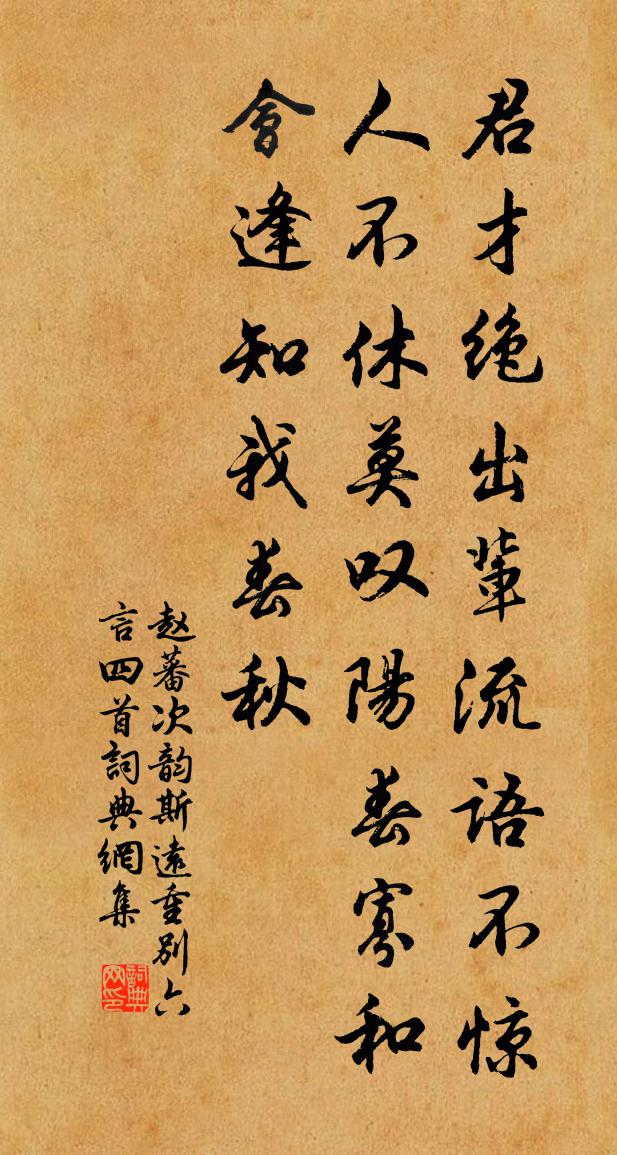 君才绝出輩流语不惊
人不休莫叹陽春寡和
會逢知我春秋
赵蕃次韵斯遠重别六
言四首詞典網集
詞典网印